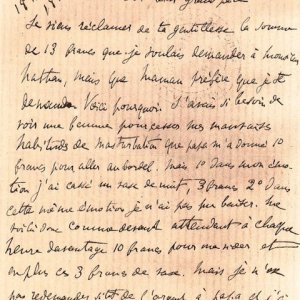 Je viens réclamer de ta gentillesse la somme
de 13 francs que je voulais demander à monsieur
Nathan, mais que maman préfère que je te
demande. Voici pourquoi. J'avais si besoin de
voir une femme pour cesser mes mauvaises
habitudes de masturbation que papa m'a donné 10
francs pour aller au bordel. Mais 1º dans mon émo-
tion j'ai cassé un vase de nuit, 3 francs 2º dans
cette même émotion je n'ai pas pu baiser. Me
voilà donc comme devant attendant à chaque
heure davantage 10 francs pour me vider et
en plus ces 3 francs de vase. Mais je n'ose
pas redemander sitôt de l'argent à papa et j'ai